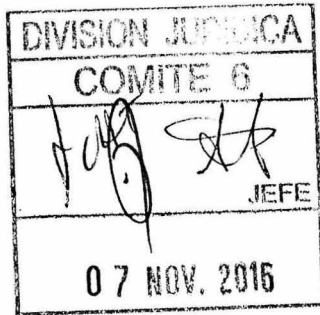 DIVISION JURIDICA
COMITE 6
JEFE
07 NOV. 2016